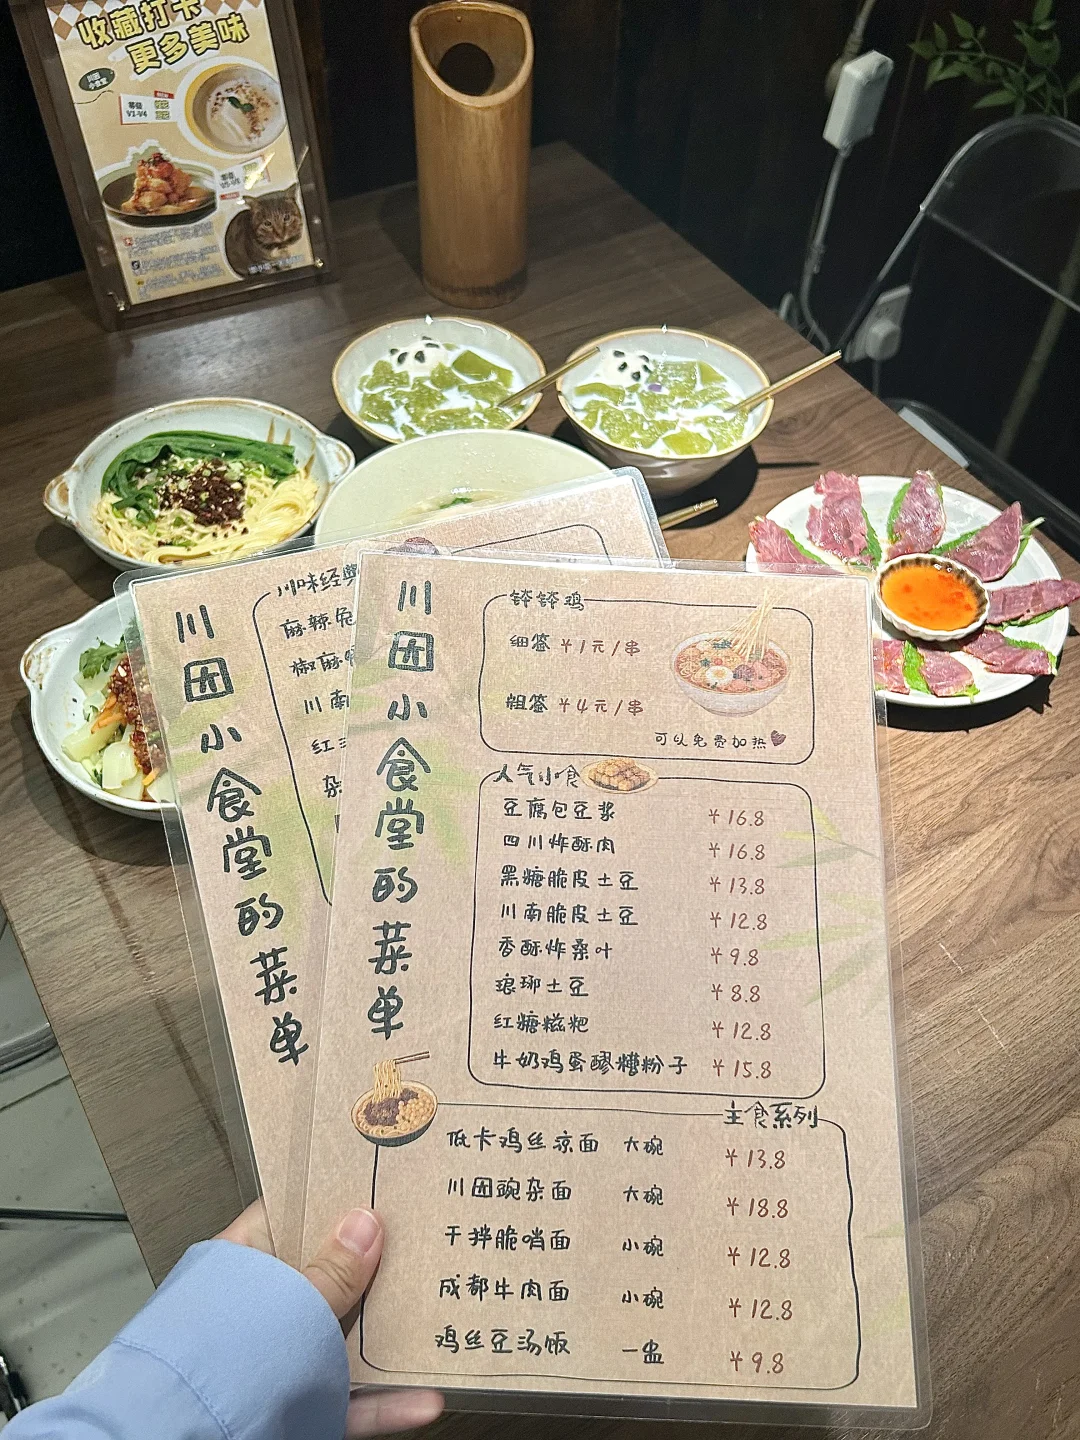 收藏打卡
更多美味
川囝小食堂的菜单
川味经典
麻辣兔
椒麻
川南
红
杂
川囝小食堂的菜单
钵钵鸡
细签 ¥1元/串
粗签 ¥4元/串
可以免费加热
人气小食
豆腐包豆浆 ¥16.8
四川炸酥肉 ¥16.8
黑糖脆皮土豆 ¥13.8
川南脆皮土豆 ¥12.8
香酥炸桑叶 ¥9.8
琅琊土豆 ¥8.8
红糖糍粑 ¥12.8
牛奶鸡蛋醪糟粉子 ¥15.8
主食系列
低卡鸡丝凉面 大碗 ¥13.8
川囝豌杂面 大碗 ¥18.8
干拌脆哨面 小碗 ¥12.8
成都牛肉面 小碗 ¥12.8
鸡丝豆汤饭 一盅 ¥9.8